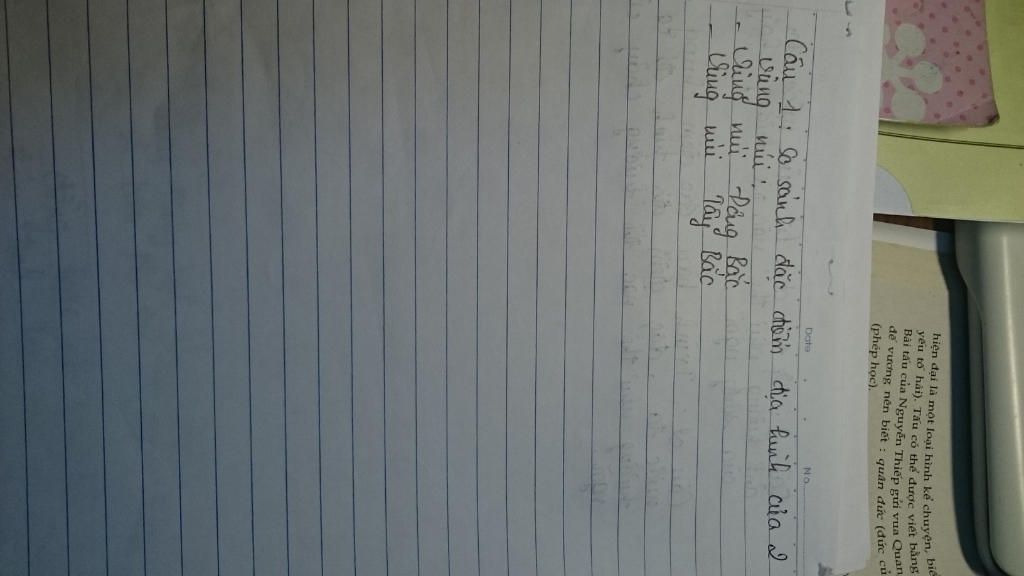 Date
No
Câu 1: So sánh đặc điểm địa hình của 2
vùng núi:
- Vùng núi Đông Bắc
- Vùng núi Tây Bắc
hiện đại là một loại hình kể chuyện, biể
yếu tố hài). Tấu có thể được viết bằng
Bài tấu của Nguyễn Thiếp gửi vua Quan
đế vương nên biết : quân đức (đức củ
(phép học).